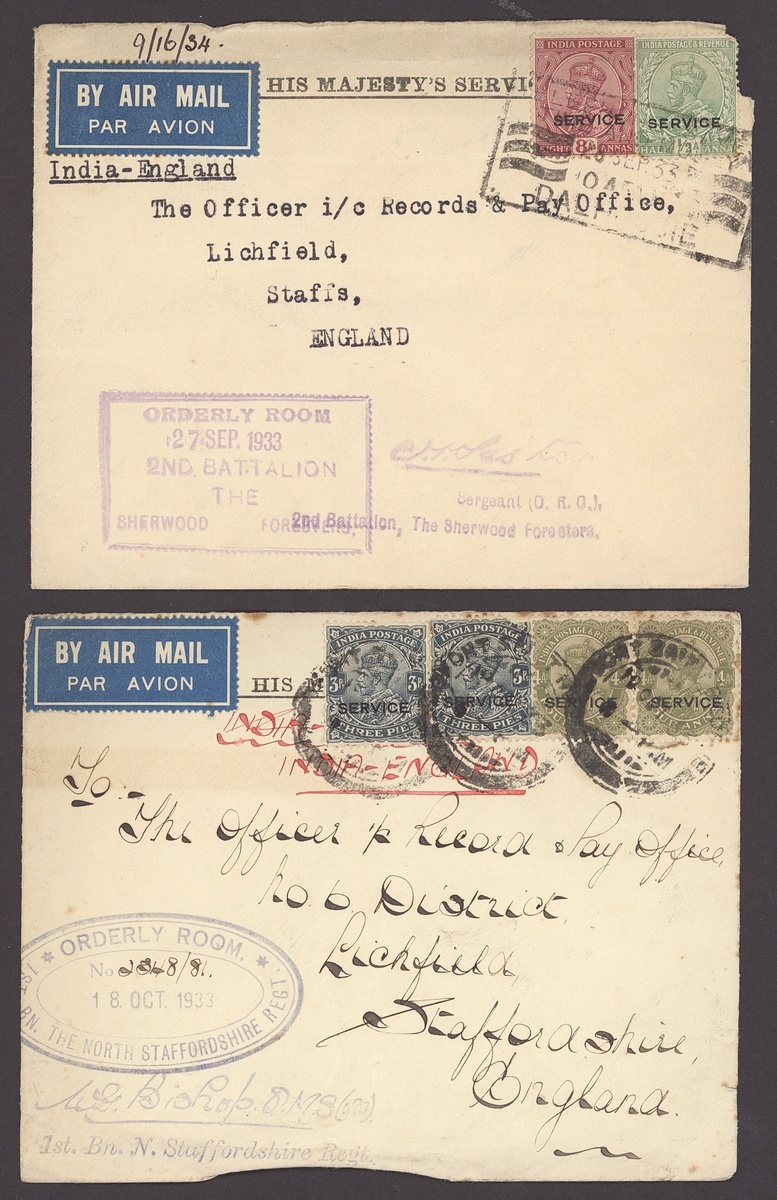 9/16/34.
BY AIR MAIL
PAR AVION
HIS MAJESTY'S SERVIC
INDIA POSTAGE
SERVICE
EIGHT 8A ANNAS
INDIA POSTAGE & REVENUE
SERVICE
HALF ANNA
SEP 33
India-England
The Officer i/c Records & Pay Office,
Lichfield,
Staffs,
ENGLAND
ORDERLY ROOM
27 SEP. 1933
2ND BATTALION
THE
SHERWOOD FORESTERS.
Sergeant (O. R. C.),
2nd Battalion, The Sherwood Foresters.
BY AIR MAIL
PAR AVION
HIS M
INDIA POSTAGE
3P 3P
SERVICE
THREE PIES
INDIA POSTAGE
3P 3P
SERVICE
THREE PIES
INDIA POSTAGE & RE
4A
SERVICE
4A
SERVICE
INDIA-
INDIA-ENGLAND
To
The Officer i/c Record & Pay Office,
No. 6 District,
Lichfield,
Staffordshire,
England.
ORDERLY ROOM.
No 2348/81.
18. OCT. 1933
1ST BN. THE NORTH STAFFORDSHIRE REGT.
Bishop.
1st. Bn. N. Staffordshire Regt.